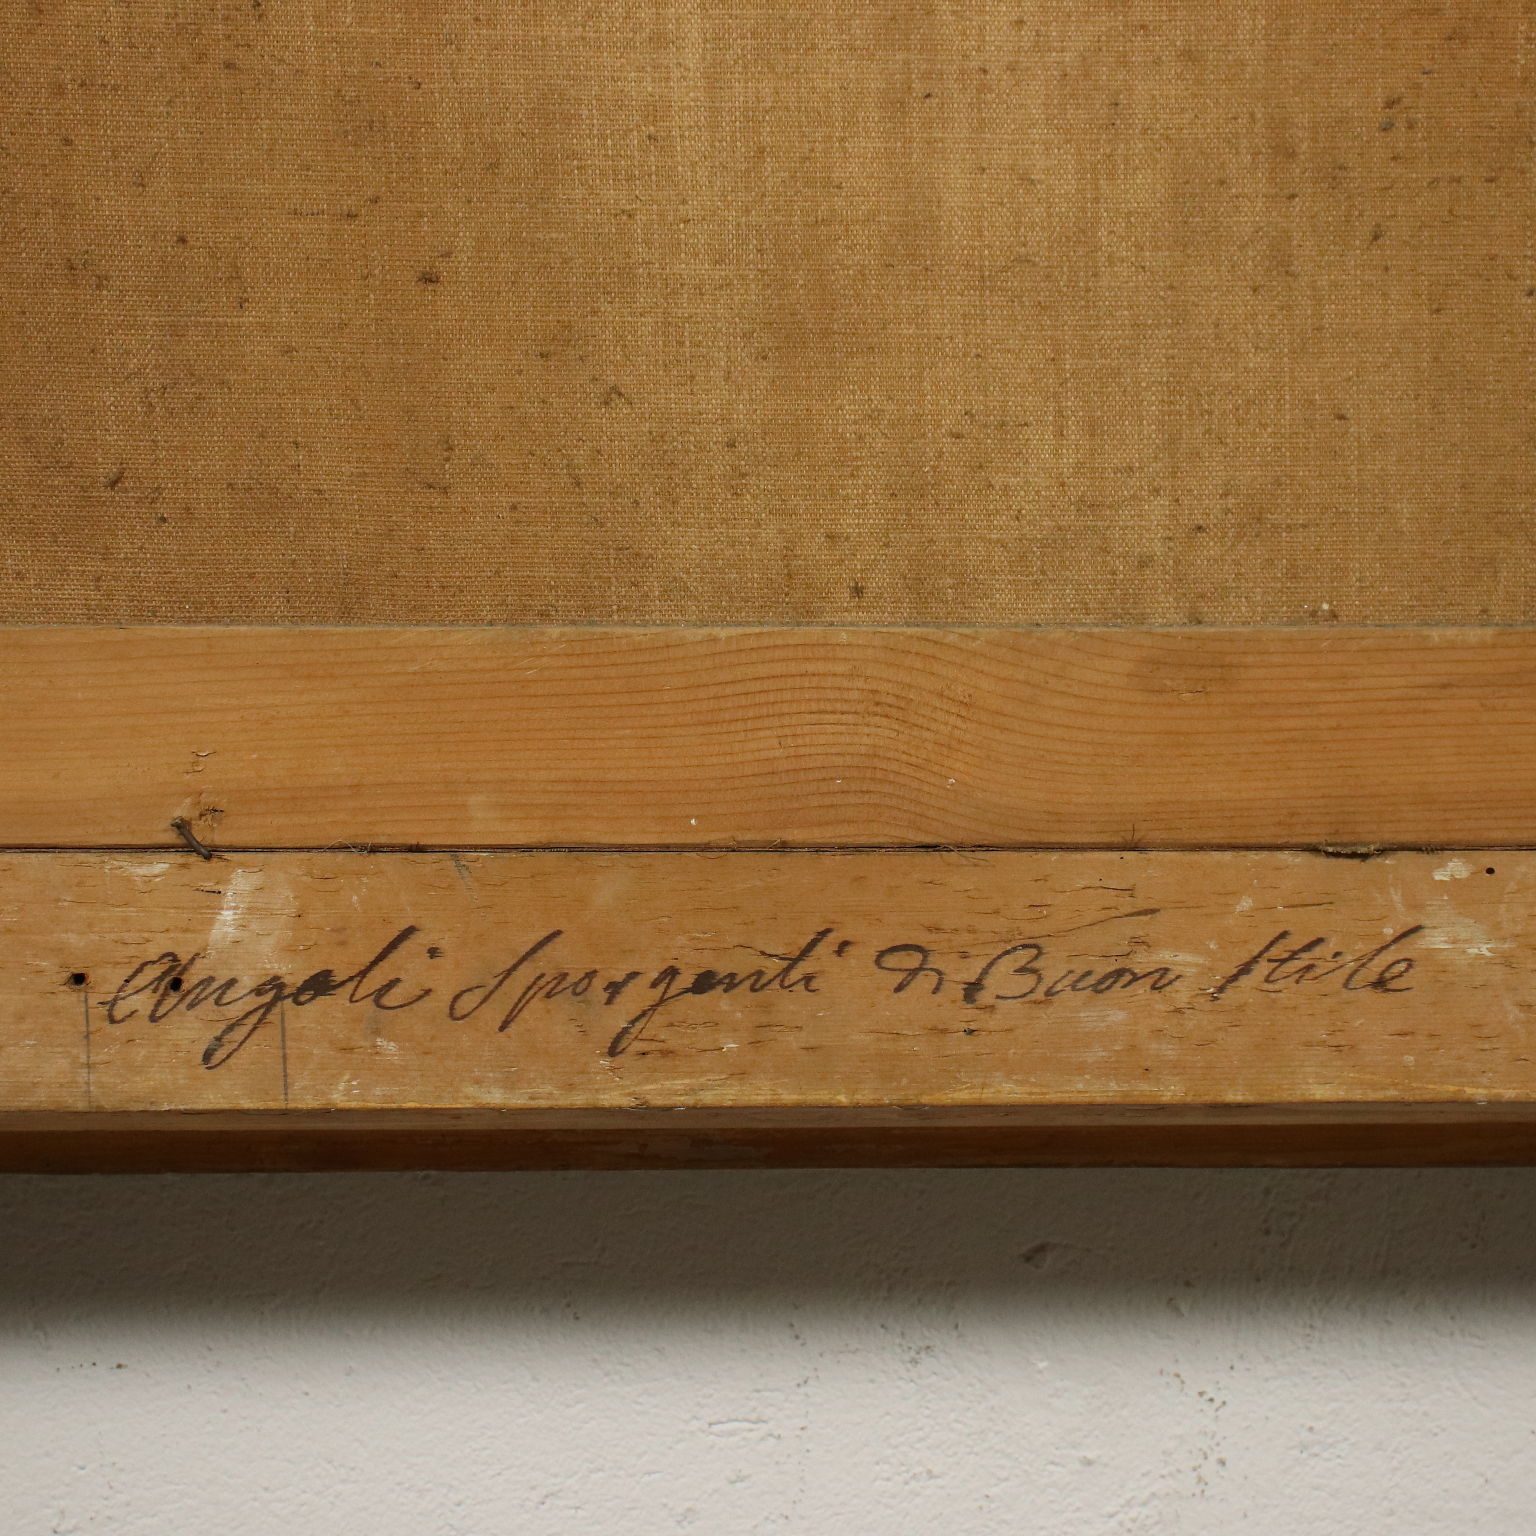 Angoli Sporgenti di Buon Stile